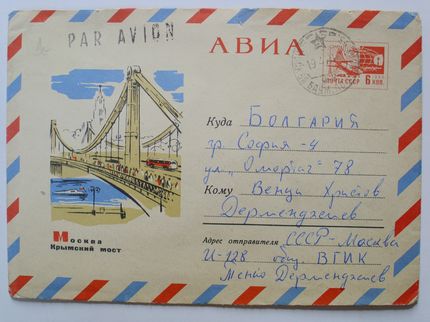 PAR AVION
АВИА
ПОЧТА СССР
6 КОП.
Куда БОЛГАРИЯ
гр. София - 4
ул. „Омортаг" 78
Кому Венци Христов
Дерменджиев
Москва
Крымский мост
Адрес отправителя СССР - Москва
И-128 общ. ВГИК
Менчо Дерменджиев